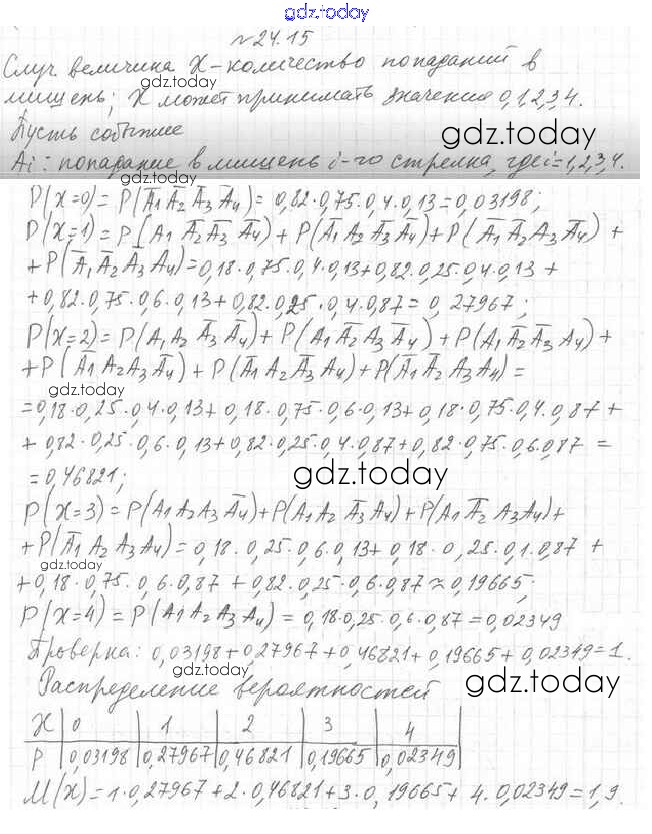 gdz.today
№24.15
Случ величина X-количество попаданий в
gdz.today
мишень; X может принимать значения 0,1,2,3,4.
Пусть событие
gdz.today
Ai: попадание в мишень i-го стрелка, где i=1,2,3,4.
gdz.today
P(x=0)=P(A̅1 A̅2 A̅3 A̅4)=0,82·0,75·0,4·0,13=0,03198;
P(x=1)=P(A1 A̅2 A̅3 A̅4)+P(A̅1 A2 A̅3 A̅4)+P(A̅1 A̅2 A3 A̅4)+
+P(A̅1 A̅2 A̅3 A4)=0,18·0,75·0,4·0,13+0,82·0,25·0,4·0,13+
+0,82·0,75·0,6·0,13+0,82·0,25·0,4·0,87=0,27967;
P(x=2)=P(A1 A2 A̅3 A̅4)+P(A1 A̅2 A3 A̅4)+P(A1 A̅2 A̅3 A4)+
+P(A̅1 A2 A3 A̅4)+P(A̅1 A2 A̅3 A4)+P(A̅1 A̅2 A3 A4)=
gdz.today
=0,18·0,25·0,4·0,13+0,18·0,75·0,6·0,13+0,18·0,75·0,4·0,87+
+0,82·0,25·0,6·0,13+0,82·0,25·0,4·0,87+0,82·0,75·0,6·0,87=
=0,46821;
gdz.today
P(x=3)=P(A1 A2 A3 A̅4)+P(A1 A2 A̅3 A4)+P(A1 A̅2 A3 A4)+
+P(A̅1 A2 A3 A4)=0,18·0,25·0,6·0,13+0,18·0,25·0,1·0,87+
+0,18·0,75·0,6·0,87+0,82·0,25·0,6·0,87≈0,19665;
P(x=4)=P(A1 A2 A3 A4)=0,18·0,25·0,6·0,87=0,02349
Проверка: 0,03198+0,27967+0,46821+0,19665+0,02349=1.
gdz.today
gdz.today
Распределение вероятностей
X 0 1 2 3 4
P 0,03198 0,27967 0,46821 0,19665 0,02349
gdz.today
M(x)=1·0,27967+2·0,46821+3·0,19665+4·0,02349=1,9.